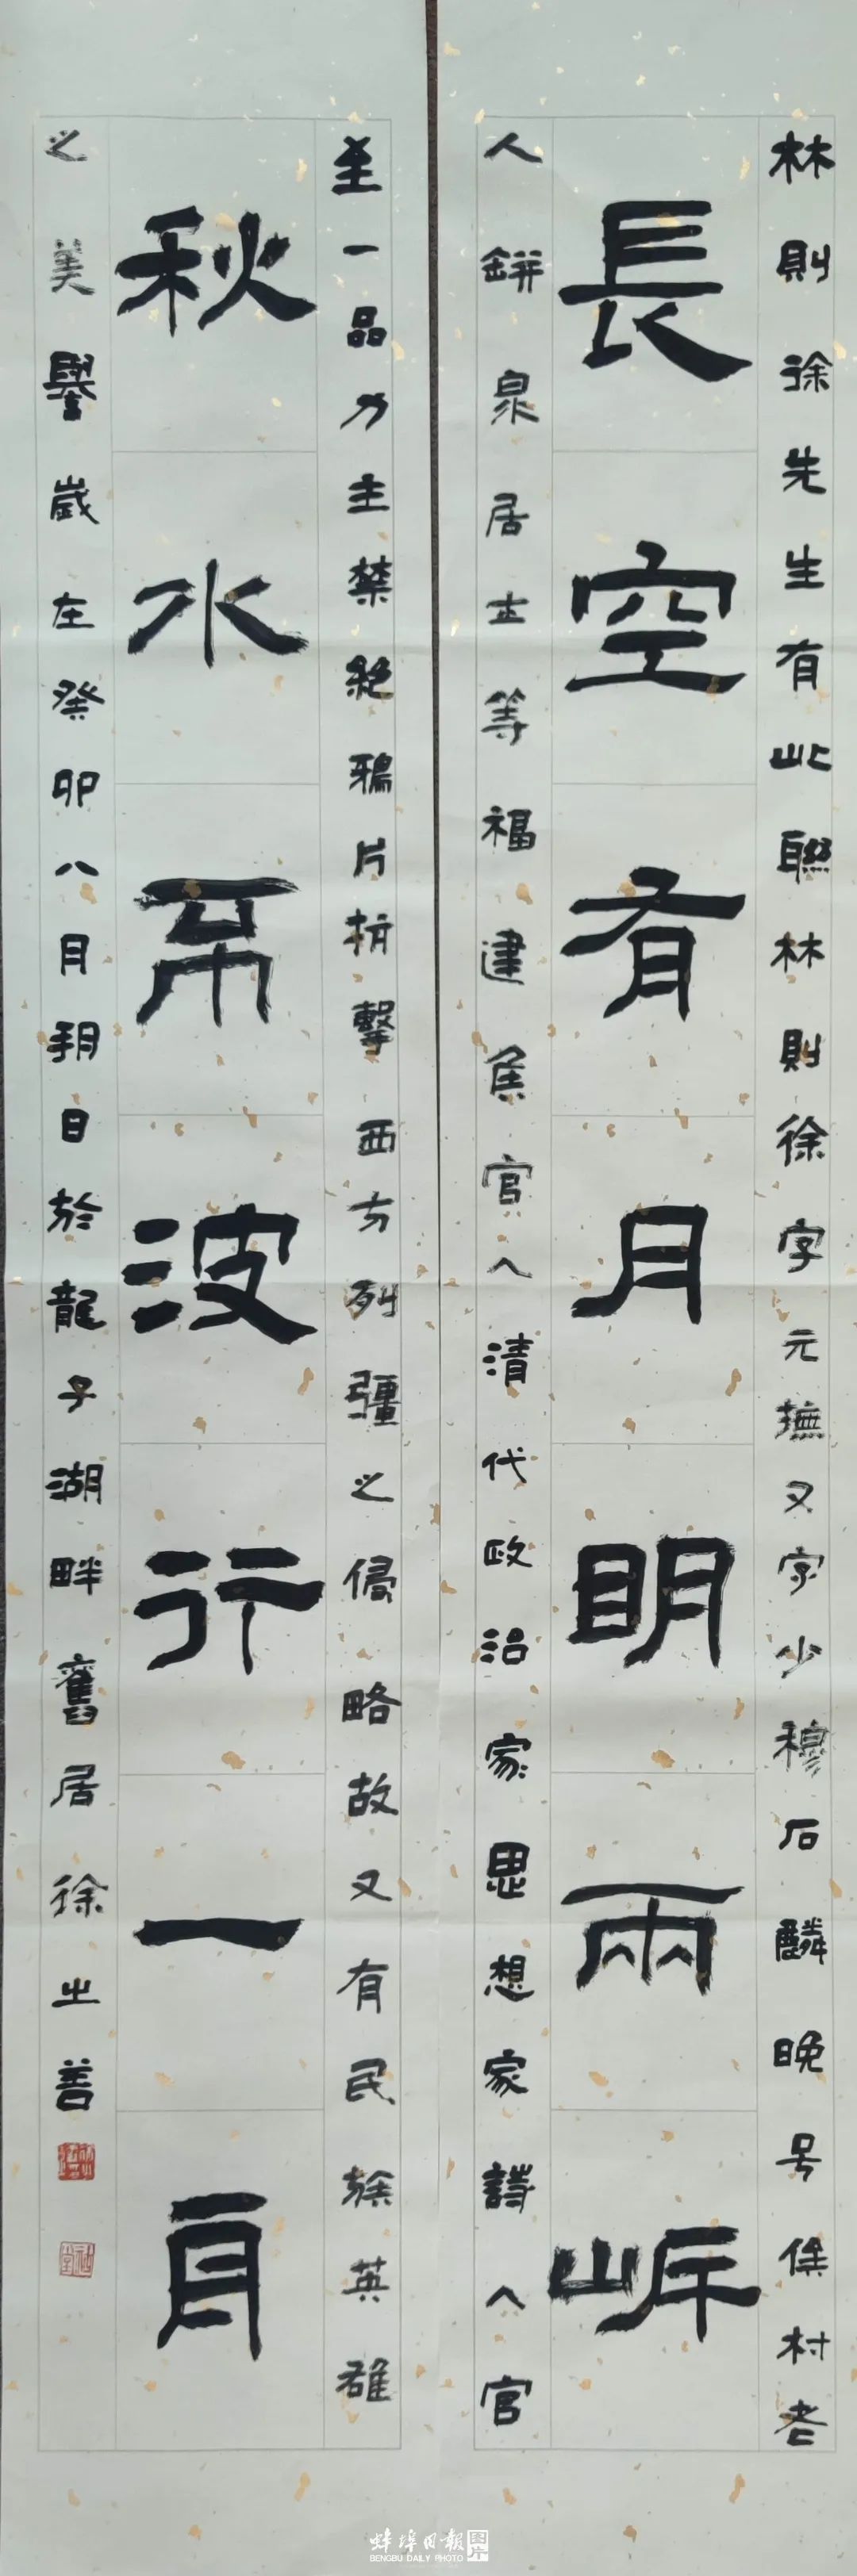 林則徐先生有此聯林則徐字元撫又字少穆石麟晚号俟村老
長空有月明兩岸
人缾泉居士等福建侯官人清代政治家思想家詩人官
至一品乃主禁絕鴉片抗擊西方列彊之侵略故又有民族英雄
秋水不波行一舟
之美譽歲在癸卯八月朔日於龍子湖畔舊居徐之善
蚌埠日報图片
BENGBU DAILY PHOTO